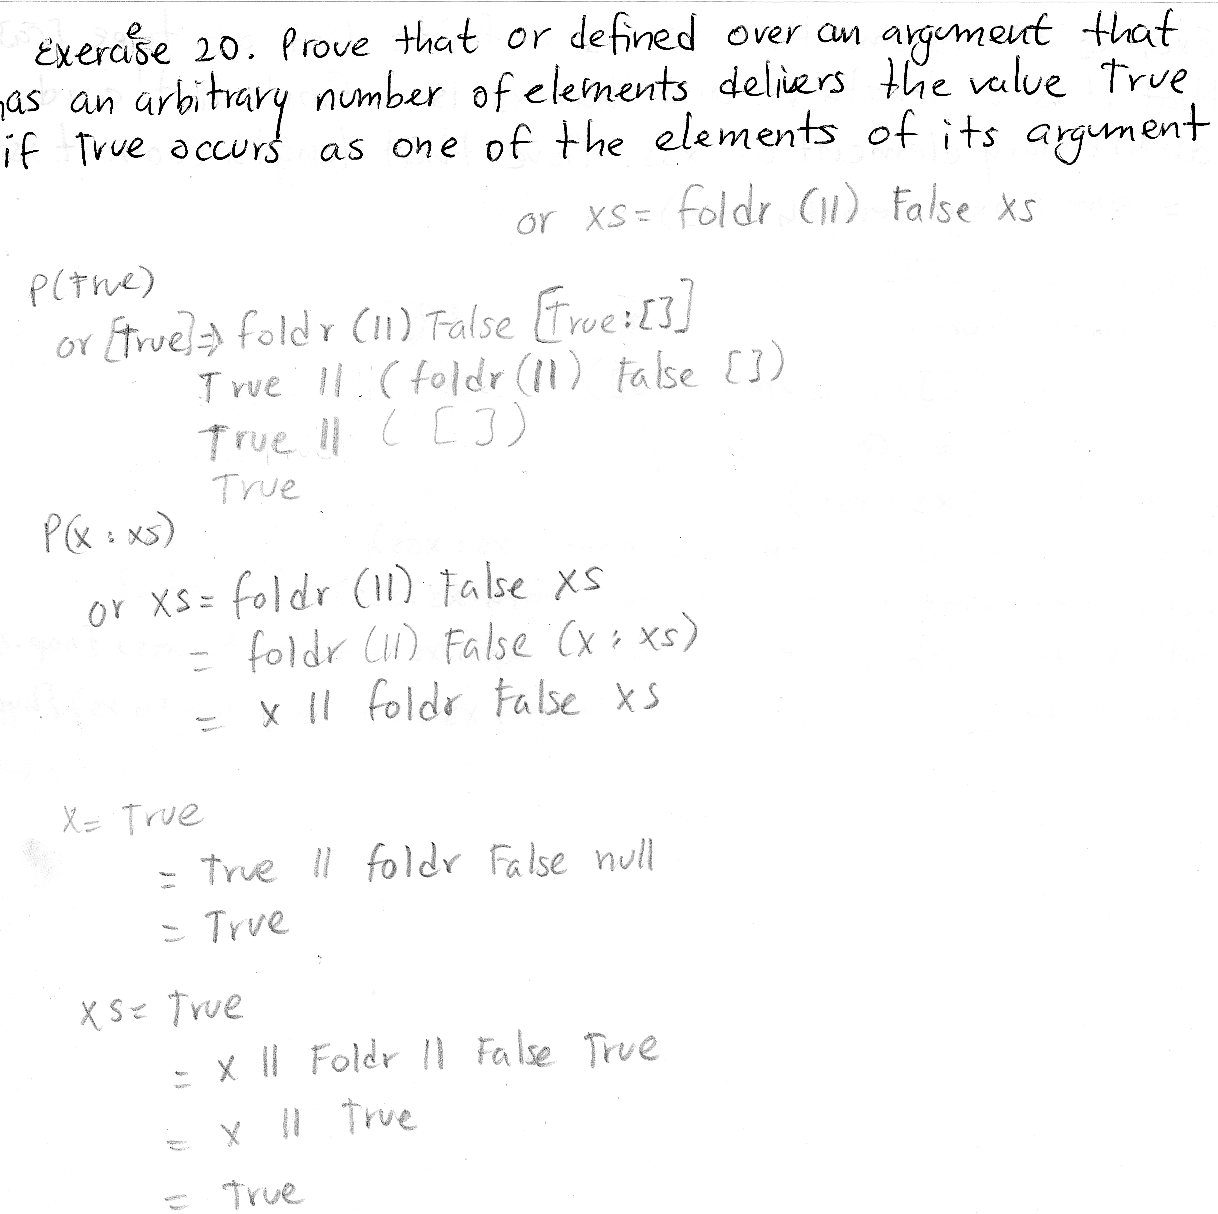 Exercise 20. Prove that or defined over an argument that
has an arbitrary number of elements delivers the value True
if True occurs as one of the elements of its argument
or xs = foldr (||) False xs
P(True)
or [True] => foldr (||) False [True:[]]
True || (foldr (||) False [])
True || ([])
True
P(x : xs)
or xs = foldr (||) False xs
= foldr (||) False (x : xs)
= x || foldr False xs
x = True
= True || foldr False null
= True
xs = True
= x || Foldr || False True
= x || True
= True